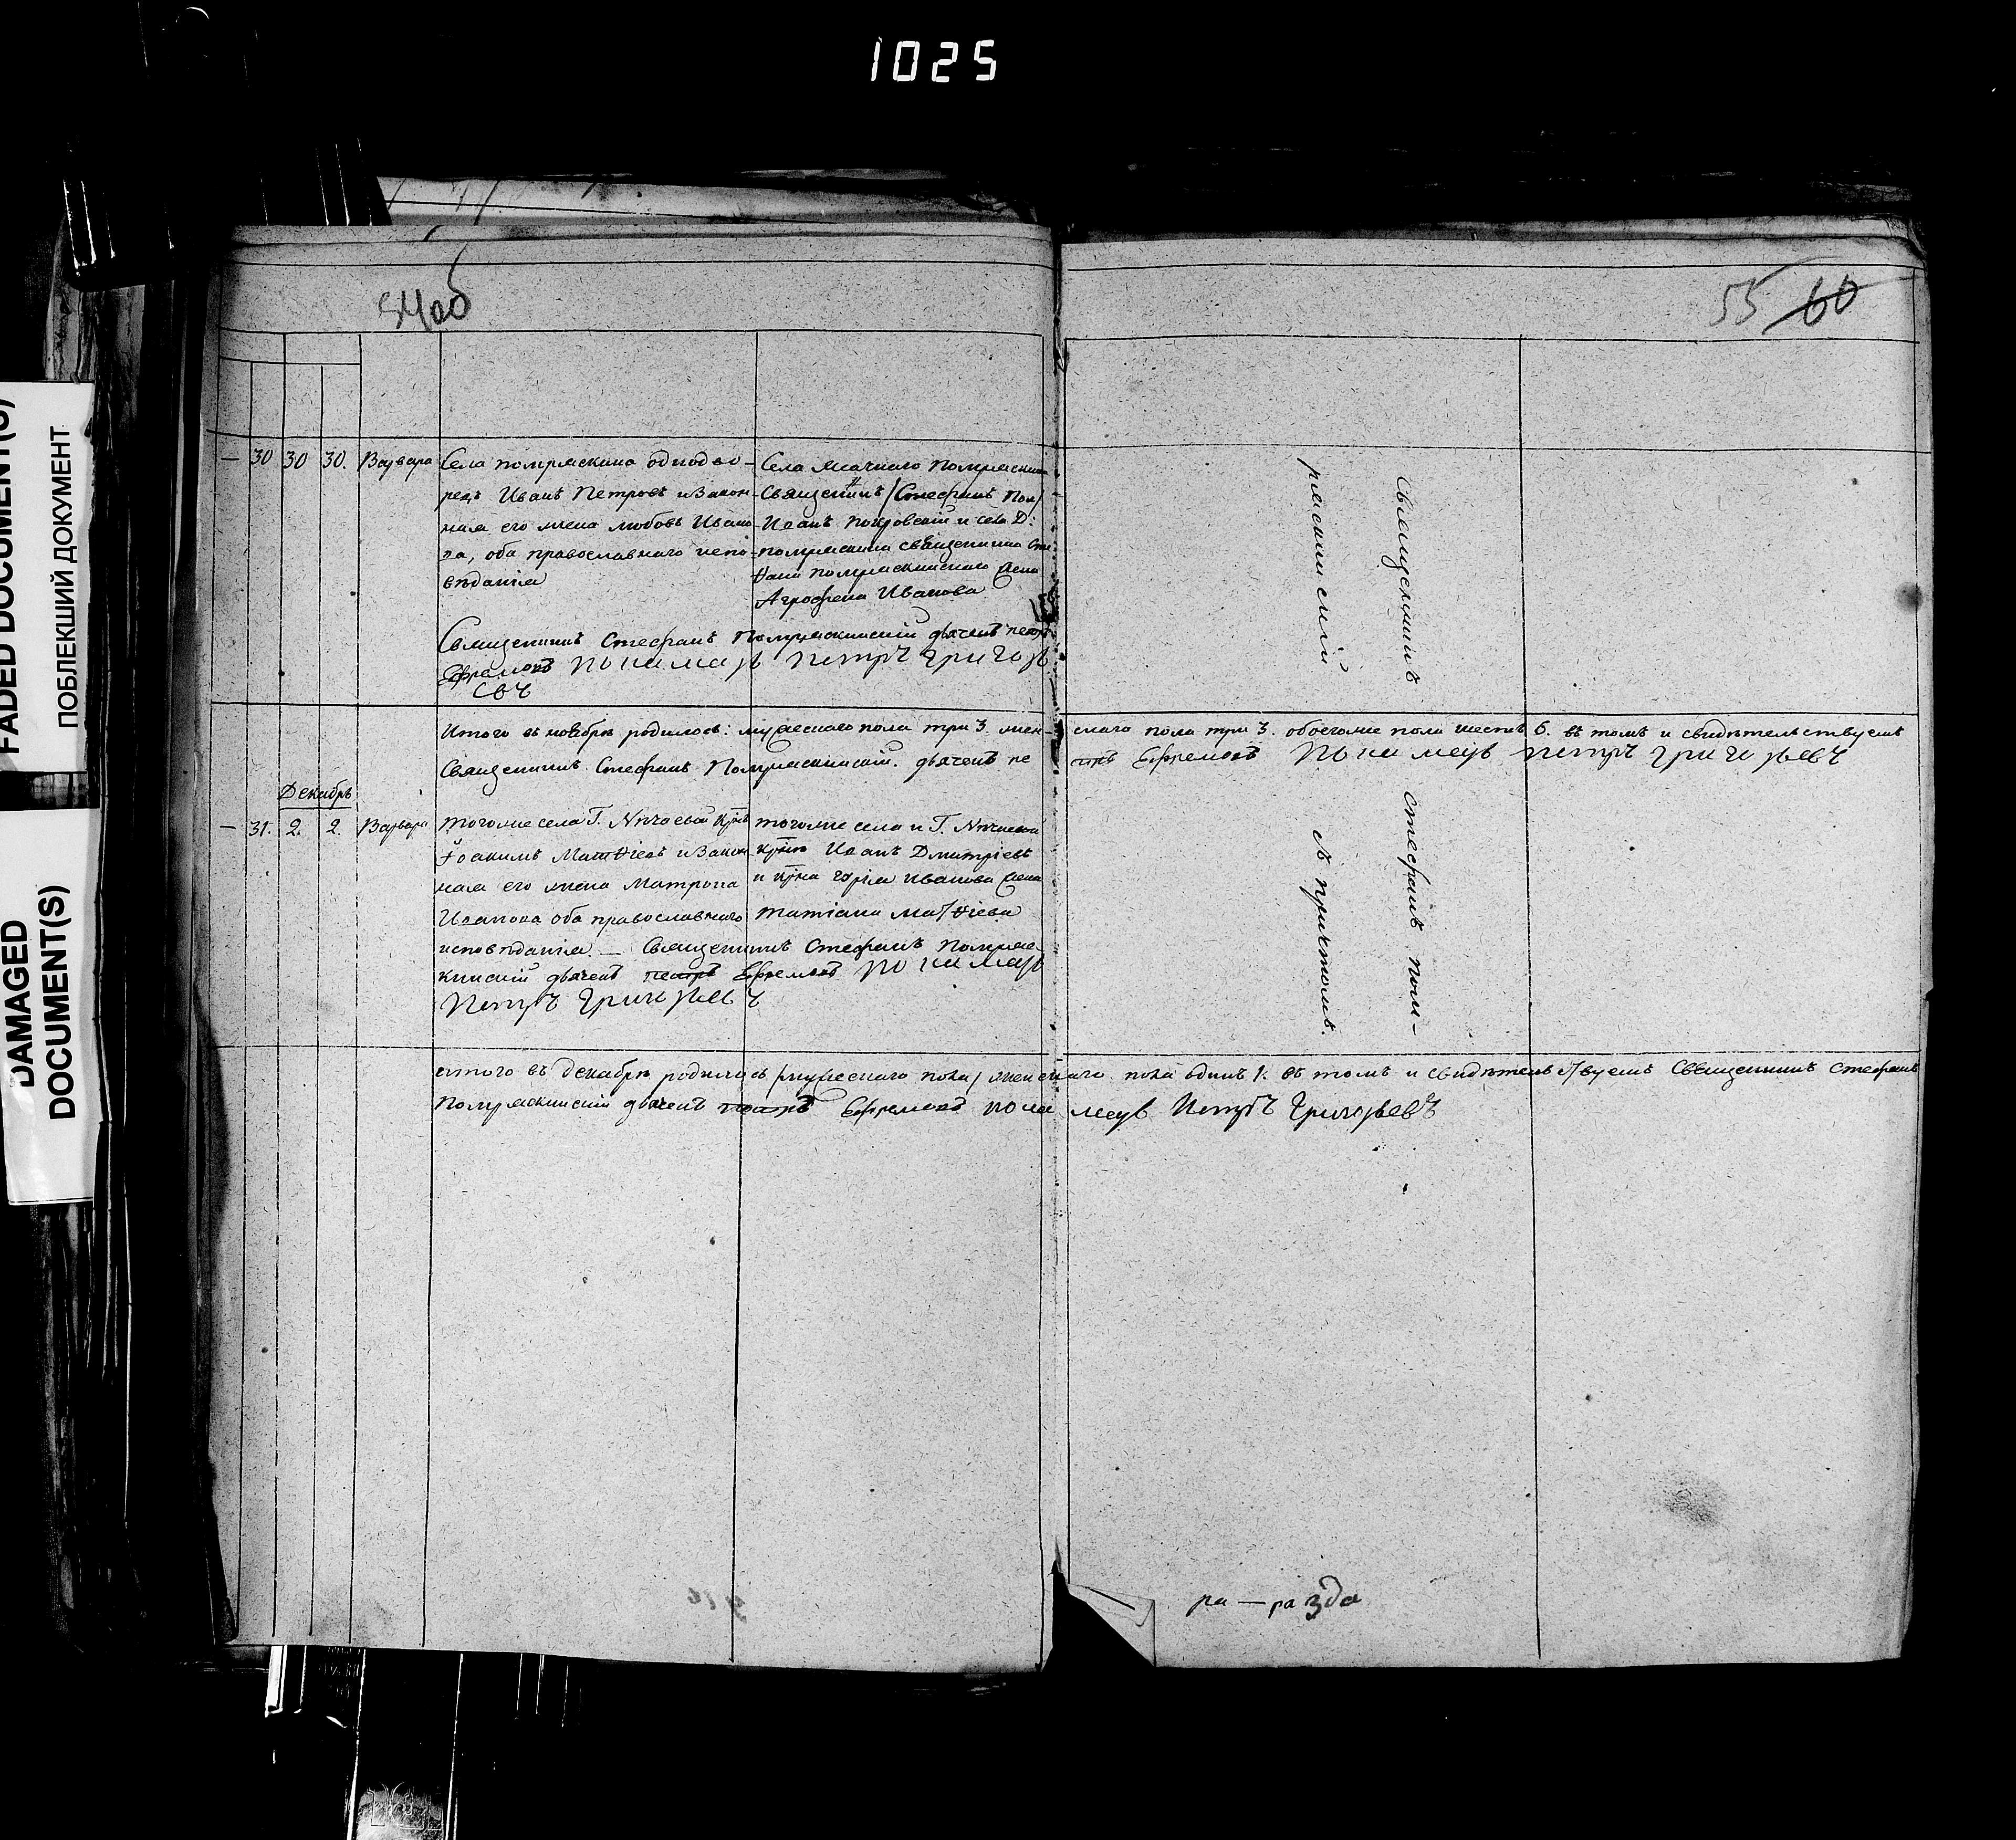 1025
FADED DOCUMENT(S)
ПОБЛЕКШИЙ ДОКУМЕНТ
DAMAGED
DOCUMENT(S)
54об
55 60
— 30 30 30. Варвара
Села помряскина однодво-
рецъ Иванъ Петровъ и Закон-
ная его жена любовь Ивано
ва, оба православнаго испо-
вѣданія
Села Помряскина
Священникъ /Стефанъ Пом/
Иванъ Покровскій и села Д:
помряскина священника Сте
Помряскинскаго жена
Агрофена Иванова
Священникъ Стефанъ Помряскинскій дьячекъ петръ
Ефремовъ Пономарь Петръ Григорь
евъ
Священникъ
ряскинскій
Итого въ ноябрѣ родилось: мужескаго пола три 3. жен-
скаго пола три 3. обоегоже пола шесть 6. въ томъ и свидѣтельствуемъ
Священникъ Стефанъ Помряскинскій. дьячекъ пе
тръ Ефремовъ Пономарь Петръ Григорьевъ
Декабрь
— 31. 2. 2. Варвара
тогоже села Г.
Іоакимъ Матѳіевъ и Закон
ная его жена Матрона
Иванова оба православнаго
исповѣданія. — Священникъ Стефанъ Помряс-
кинскій дьячекъ петръ Ефремовъ Пономарь
Петръ Григорьевъ
тогоже села и Г.
Иванъ Дмитріевъ
Иванова жена
Татіана Матѳіева
Стефанъ пом-
съ причтомъ.
итого въ декабрѣ родилось /мужескаго пола/ женскаго пола одинъ 1. въ томъ и свидѣтельствуемъ Священникъ Стефанъ
Помряскинскій дьячекъ петръ Ефремовъ пономарь Петръ Григорьевъ
ра — разда